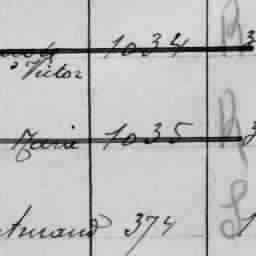 1034 R 3
Victor
Marie 1035 R 3
Armand 374 S 1